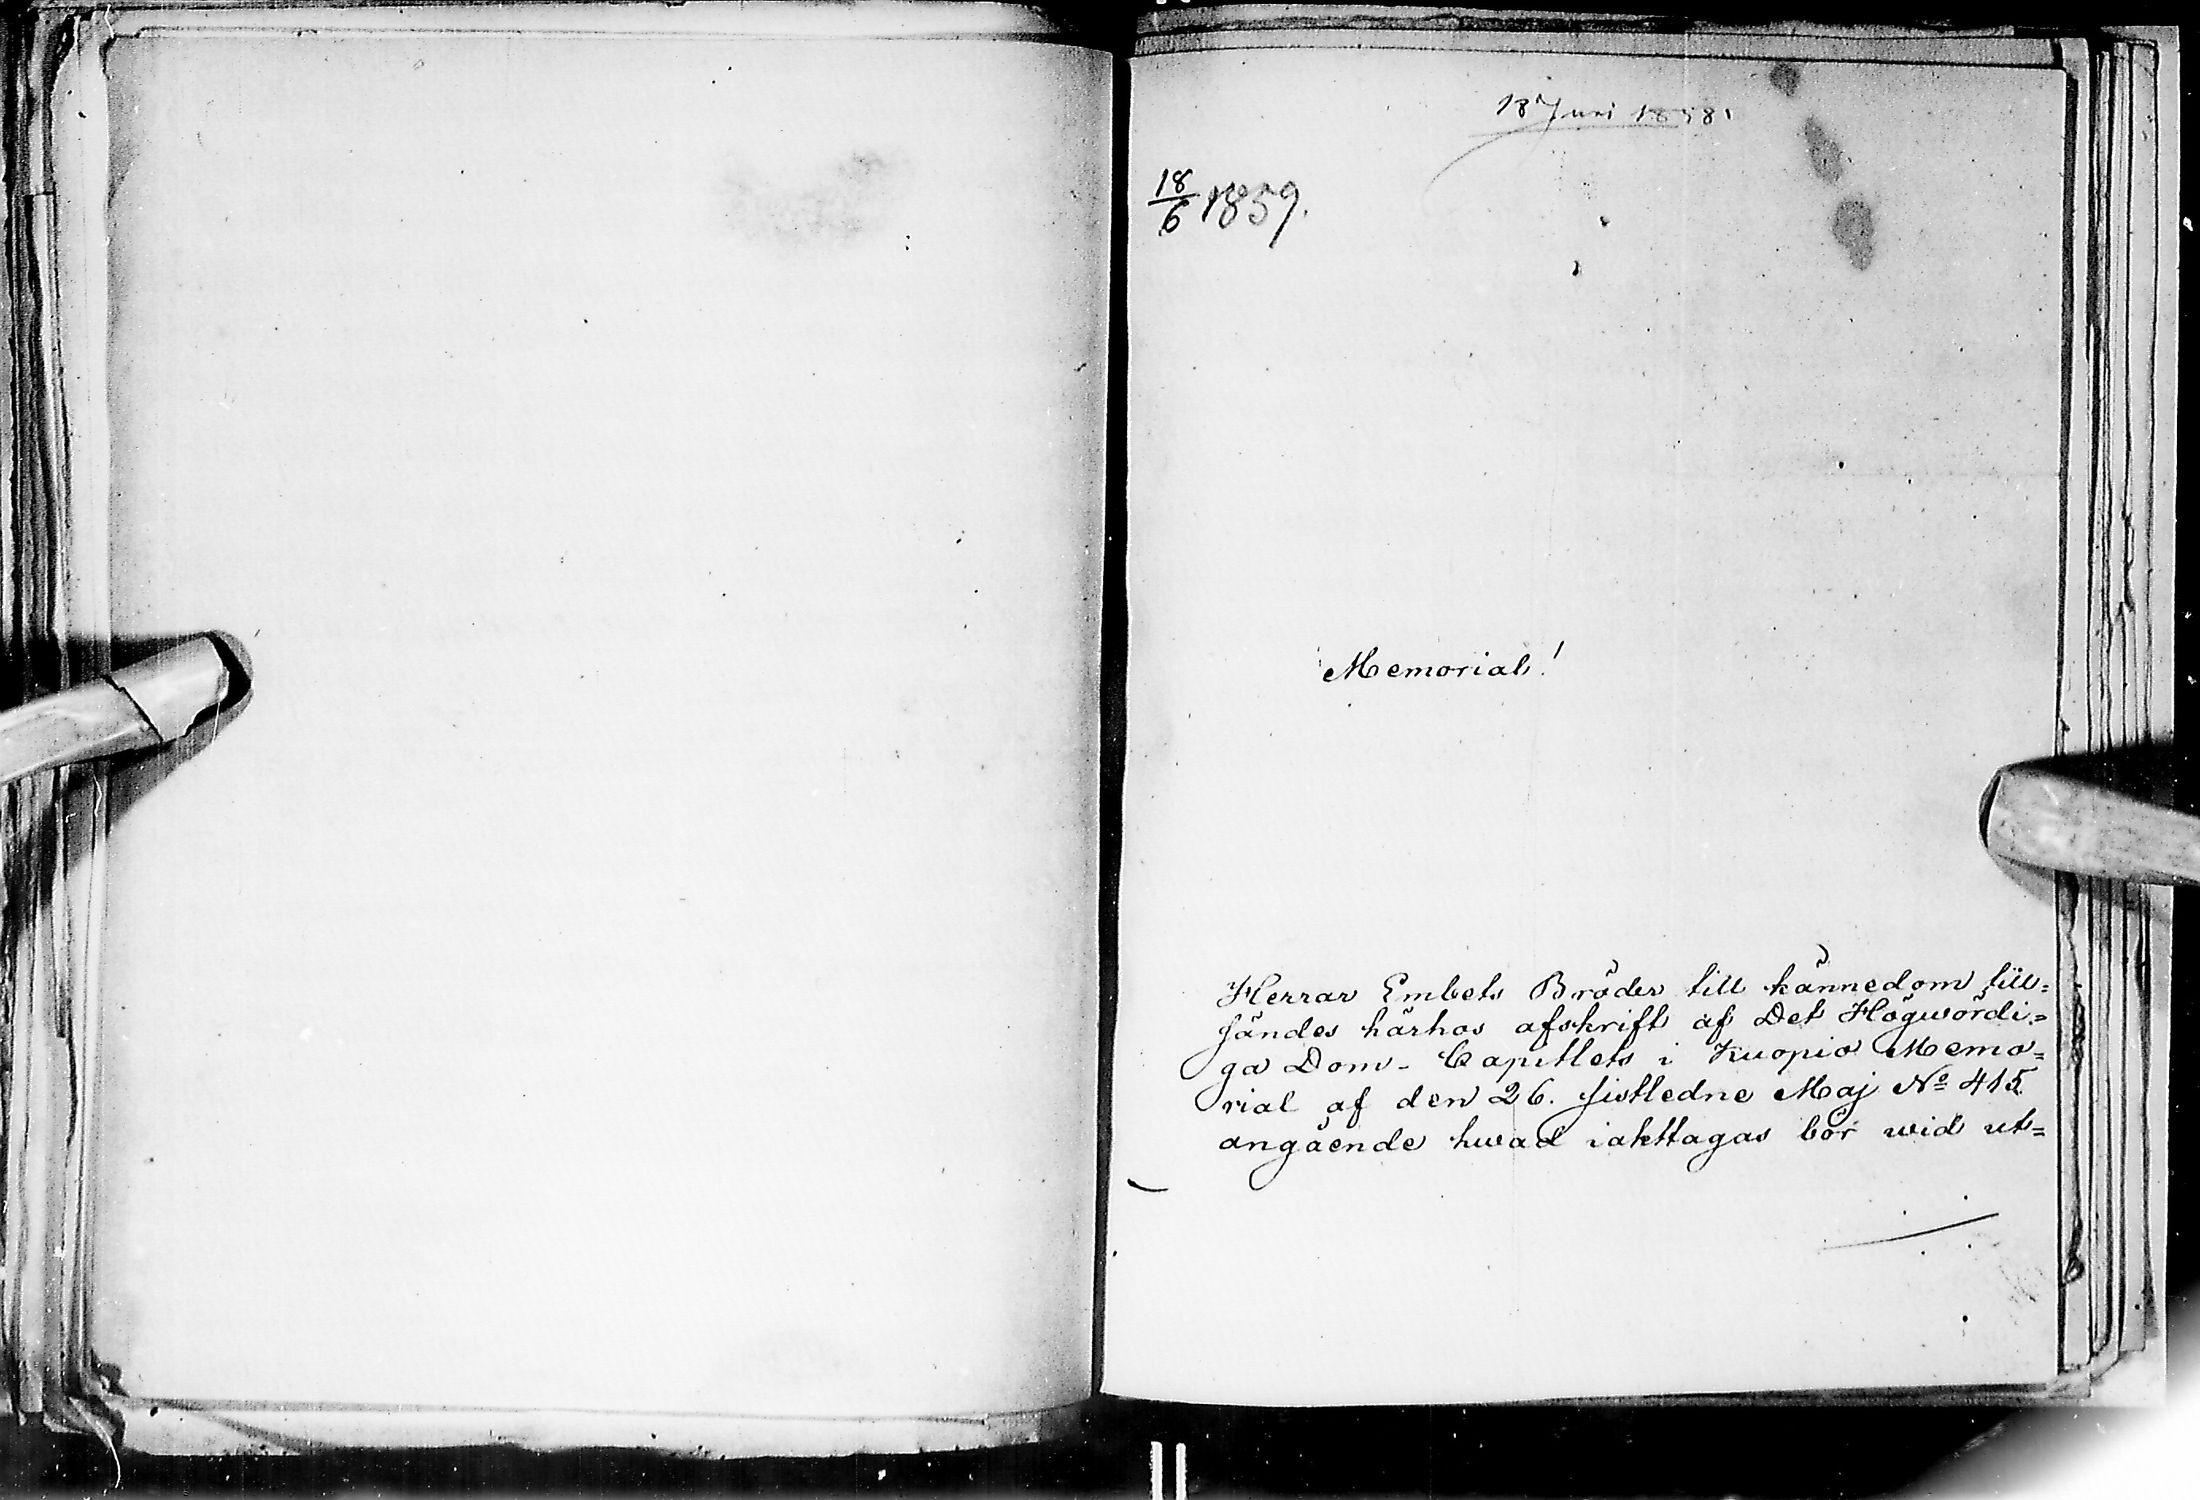 18 Juni 1858.
18/6 1859.
Memorial!
Herrar Embets Bröder till kännedom till=
sändes härhos afskrift af Det Högwördi=
ga Dom-Capitlets i Kuopio Memo=
rial af den 26. sistledne Maj No 415
angående hwad iakttagas bör wid ut=